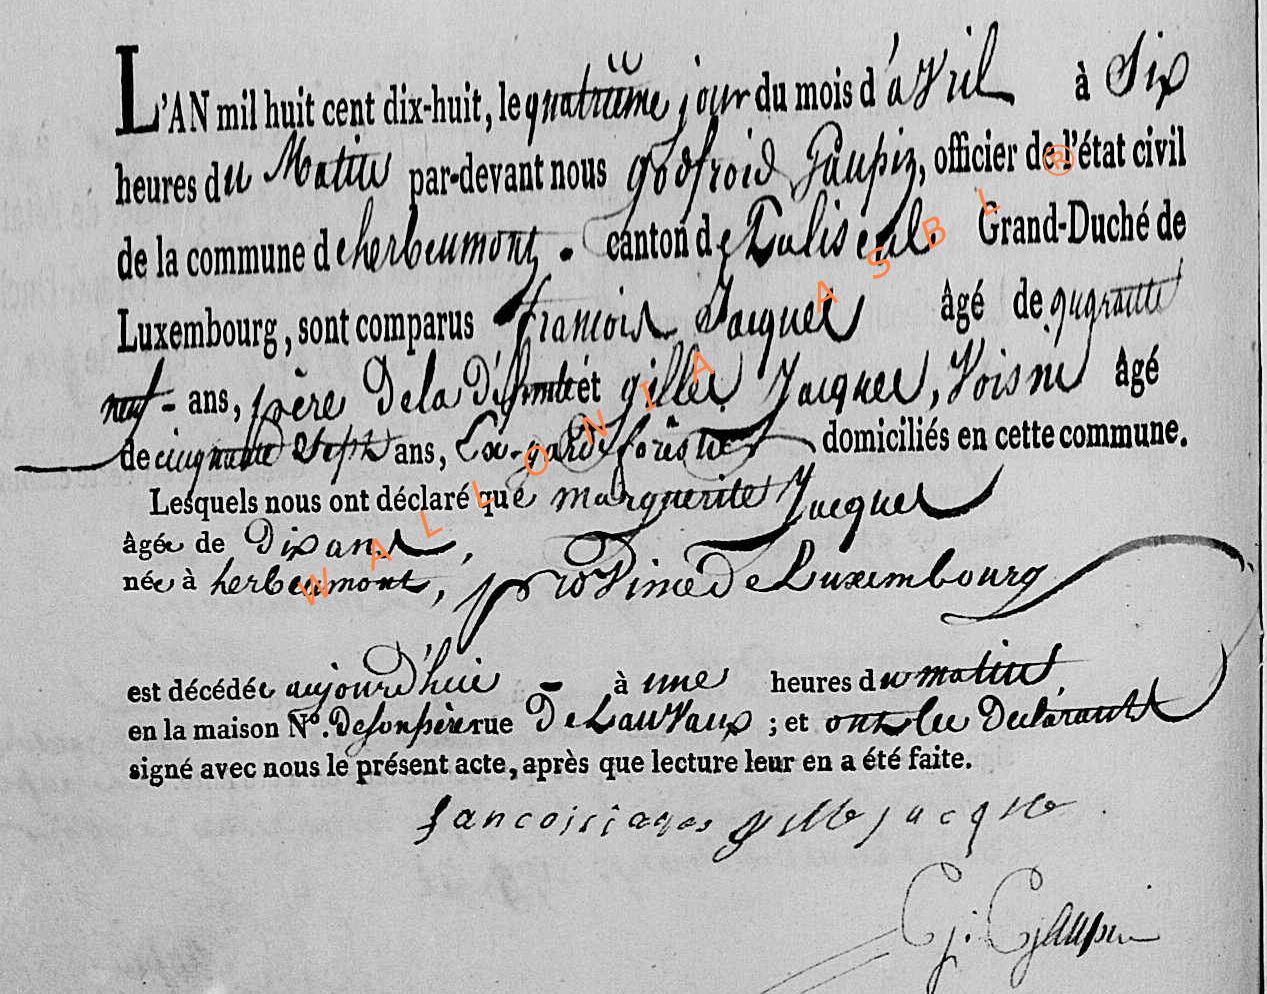 L'AN mil huit cent dix-huit, le quatriême jour du mois d'avril à Six
heures du Matin par-devant nous godfroid Gaupin, officier de l'état civil
de la commune d'herbeumont. canton de Paliseul Grand-Duché de
Luxembourg, sont comparus francois Jacques âgé de quarante
neuf - ans, père De la Défunte et gilles Jacques, Voisin âgé
de cinquante Sept ans, Ex-garde forêstier domiciliés en cette commune.
Lesquels nous ont déclaré que marguerite Jacques
âgée de Dix ans,
née à herbeumont, province De Luxembourg
est décédée aujourd'hui - à une heures du matin
en la maison N.º De son père rue De Lauvaux ; et ont les Declarants
signé avec nous le présent acte, après que lecture leur en a été faite.
fancois jaqes gille jacqle
G. j. Gaupin
WALLONIA ASBL ®